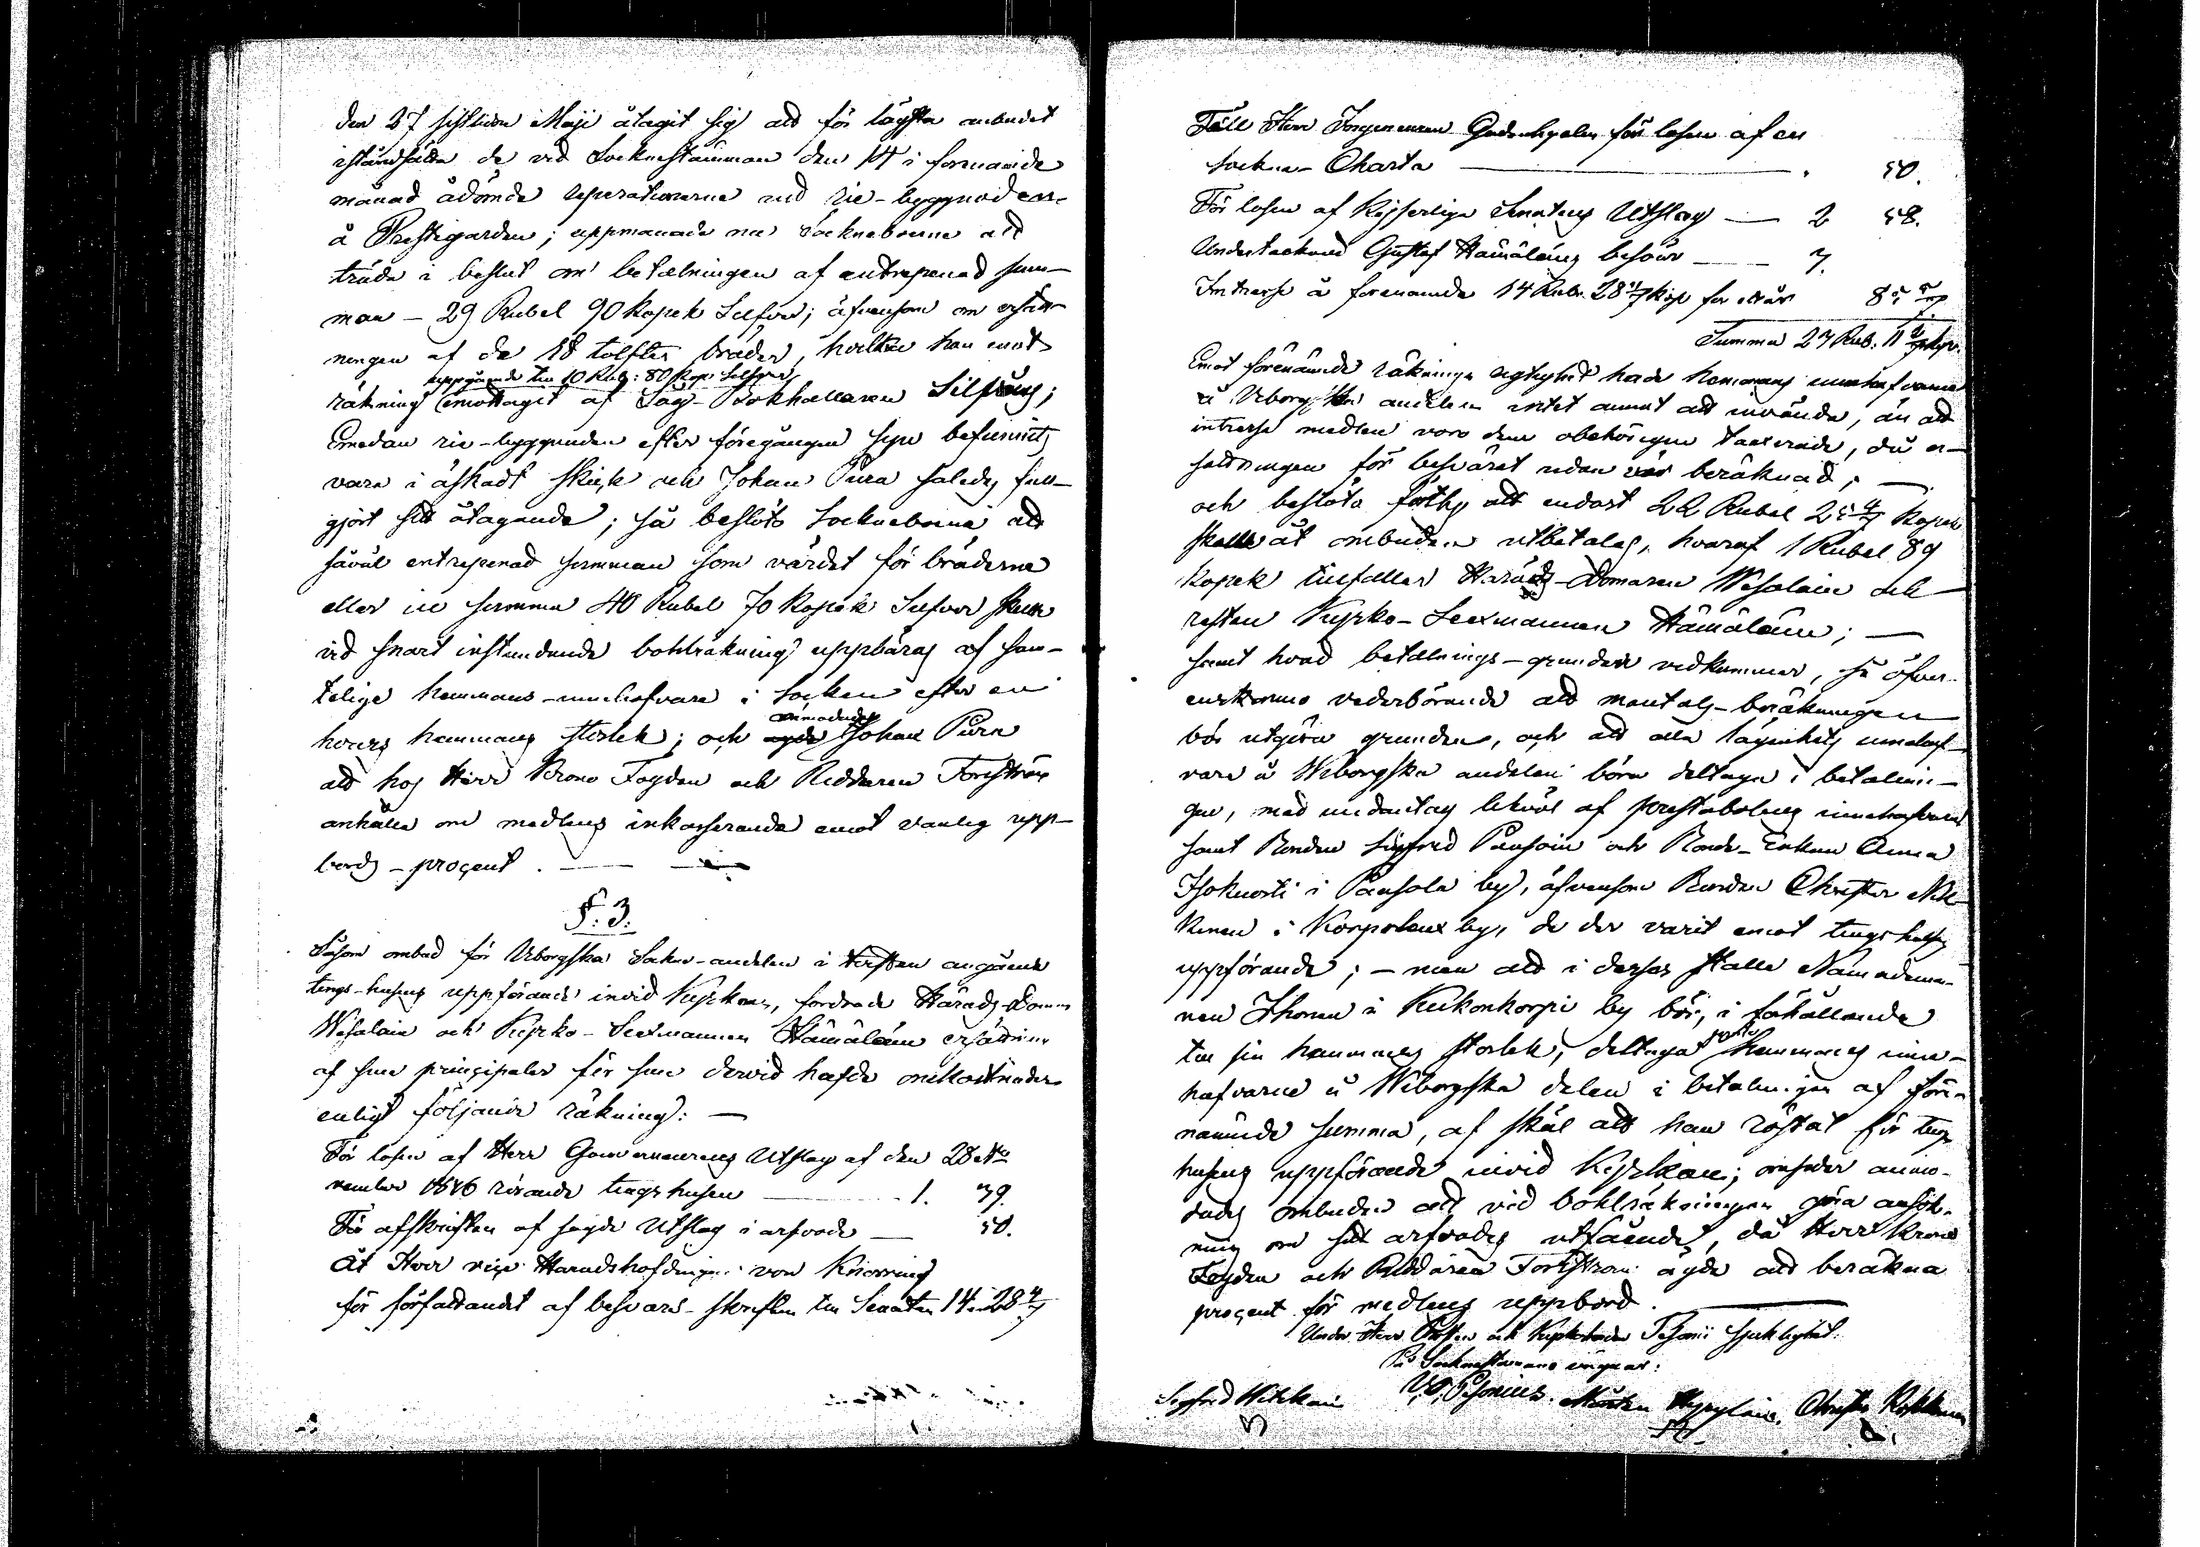 den 27 sistlidne Maji åtagit sig att för lägsta anbudet
iståndsätta de vid Socknestämman den 14 i förenämnde
månad ådömde reperationerne vid rie-byggnaderne
å Prestgården; uppmanade nu Sockneboerne att
träda i beslut om betalningen af entreprenad sum-
man - 29 Rubel 90 kopek Silfver; äfvensom om ersätt-
ningen af de 18 tolfter bräder, hvilka han emot
uppgående till 10 Rub: 80 kop. Silfver
räkning emottagit af Såg-Bokhållaren
Emedan rie-byggnaden efter föregången syn befunnits
vara i åstadt skick och Johan Pura således full-
gjort sitt åtagande; så beslöto Sockneboerne att
såväl entreprenad summan som värdet för bräderne
eller in summa 40 Rubel 70 Kopek Silfver skulle
vid snart instundande bohlräkning uppbäras af sam-
telige hemmans-innehafvare i Socken efter en
anmodades
hvars hemmans storlek; och Johan Pura
att hos Herr Krono Fogden och Riddaren Forsström
anhålla om medlens inkasserande emot vanlig upp-
bords-procent. —
§: 3.
Såsom ombud för Wiborgska Sokne-andelen i tvisten angående
tings-husets uppförande invid Kyrkan, fordrade Härads-Domaren
och Kyrko-Sexmannen Hämäläinen ersättning
af sine principaler för sine dervid hafde omkostnader
enligt följande räkning: —
För lösen af Herr Gouverneurens Utslag af den 28 No-
vember 1846 rörande tingshusen — 1. 39.
För afskriften af sagde Utslag i arfvode — 50.
Åt Herr vice Häradshöfdingen von Knorring
för författandet af besvärs-skriften till Senaten 14 28 4/7
Till Herr Ingenieuren för lösen af en
Sockne-Charta — . 50.
För lösen af Kejserliga Senatens Utslag — 2 58.
Undertecknad Gustaf Hämäläins besvär — 7.
Intresse å förenämnde 14 Rub. 28 4/7 kop för ett år 85 5/7
Summa 27 Rub. 11 kop.
Emot förenämnde räknings rigtighet hade hemmans innehafvarne
å Wiborgska andelen intet annat att invända, än att
intresse medlen voro dem obehörigen påförde, då er-
sättningen för besväret redan var beräknad; —
och beslöto att endast 22 Rubel 25 4/7 Kopek
skulle åt ombuden utbetalas, hvaraf 1 Rubel 89
Kopek tillfaller Härads-Domaren och
resten Kyrko-Sexmannen Hämäläinen; —
samt hvad betalnings-grunden vedkommer, så öfver-
enskommo vederbörande att mantals-beräkningen
bör utgöra grunden, och att alla lägenhets innehaf-
vare å Wiborgska andelen böra deltaga i betalnin-
gen, med undantag likväl af prestabolens innehafvare
samt Bonden Sigfrid och Bonde-Enkan Anna
i by, äfvensom Bonden Christer
i by, de der varit emot tingshusets
uppförande; - men att i dessas ställe Nämndeman-
nen Ihonen i Kukonkorpi by bör, i förhållande
till sin hemmans storlek, deltaga hemmans inne-
hafvarne å Wiborgska delen i betalningen af före-
nämnde summa, af skäl att han röstat för tings
husens uppförande invid Kyrkan; omsider anmo-
dades ombuden att vid bohlräkningen göra ansök-
ning om sitt arfvodes utfående, då Herr Krono
Fogden och Riddaren Forsström ägde att beräkna
procent för medlens uppbord. —
Under Herr och Kyrkoherden sjuklighet.
På Socknestämmans vägnar: